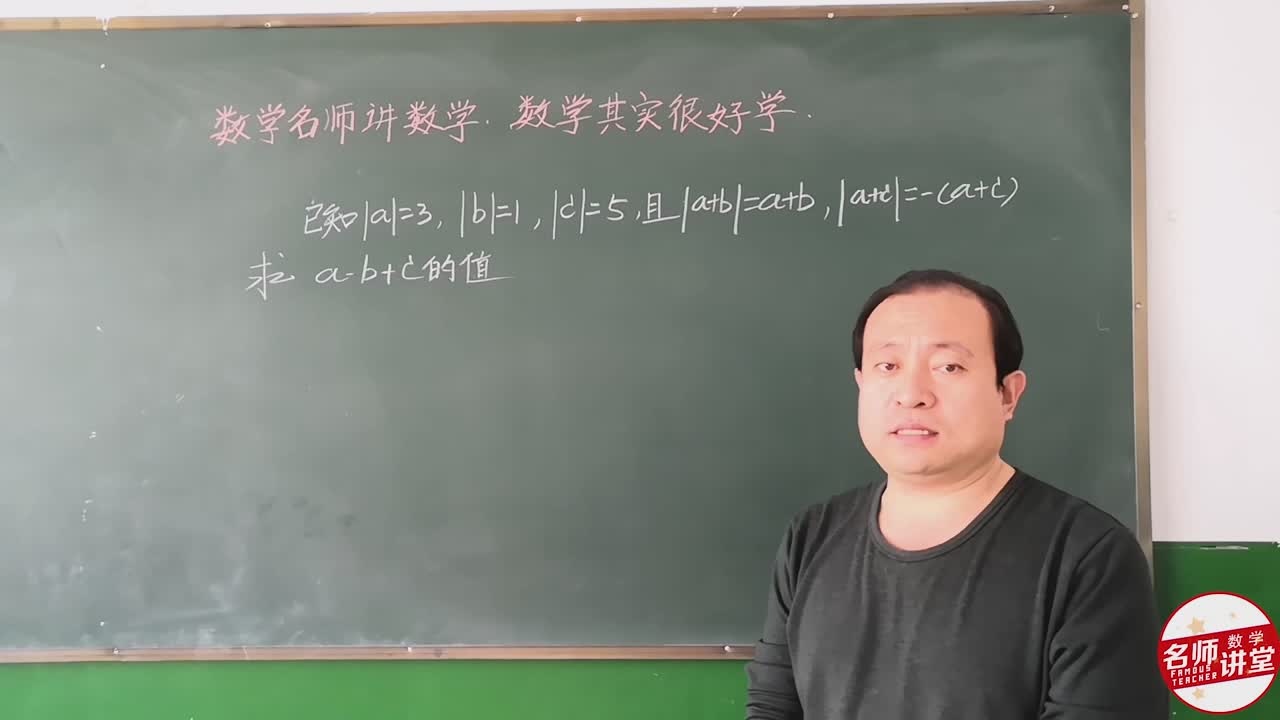 数学名师讲数学.数学其实很好学.
已知|a|=3,|b|=1,|c|=5,且|a+b|=a+b,|a+c|=-(a+c)
求 a-b+c的值
数学
名师讲堂
FAMOUS
TEACHER